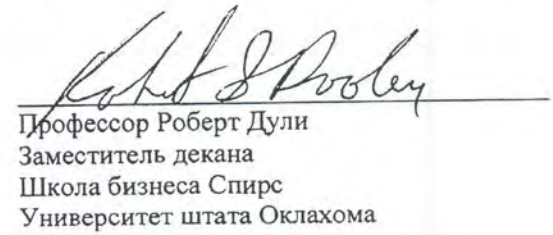 Robert S Dooley
Профессор Роберт Дули
Заместитель декана
Школа бизнеса Спирс
Университет штата Оклахома